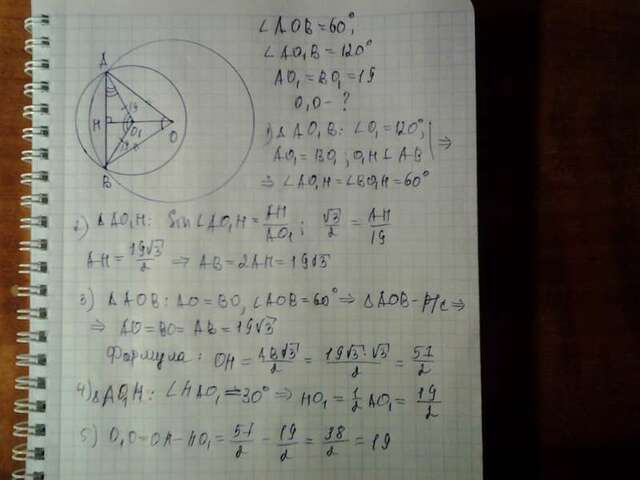 ∠AOB = 60°;
∠AO₁B = 120°
AO₁ = BO₁ = 19
O₁O - ?
A
19
H
O₁
O
19
B
1) △ AO₁B: ∠O₁ = 120°;
AO₁ = BO₁; O₁H ⊥ AB | ⇒
⇒ ∠AO₁H = ∠BO₁H = 60°
2) △AO₁H: Sin ∠AO₁H = AH/AO₁; √3/2 = AH/19
AH = 19√3/2 ⇒ AB = 2AH = 19√3
3) △AOB: AO = BO, ∠AOB = 60° ⇒ △AOB - р/с ⇒
⇒ AO = BO = AB = 19√3
Формула: OH = AB√3/2 = 19√3·√3/2 = 57/2
4) △AO₁H: ∠HAO₁ = 30° ⇒ HO₁ = 1/2 AO₁ = 19/2
5) O₁O = OH - HO₁ = 57/2 - 19/2 = 38/2 = 19